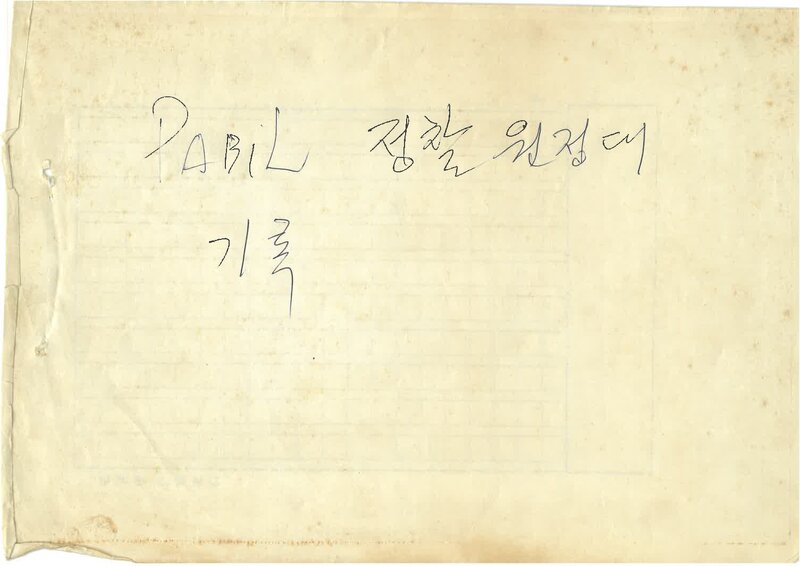 PABiL 정찰원정대
기록